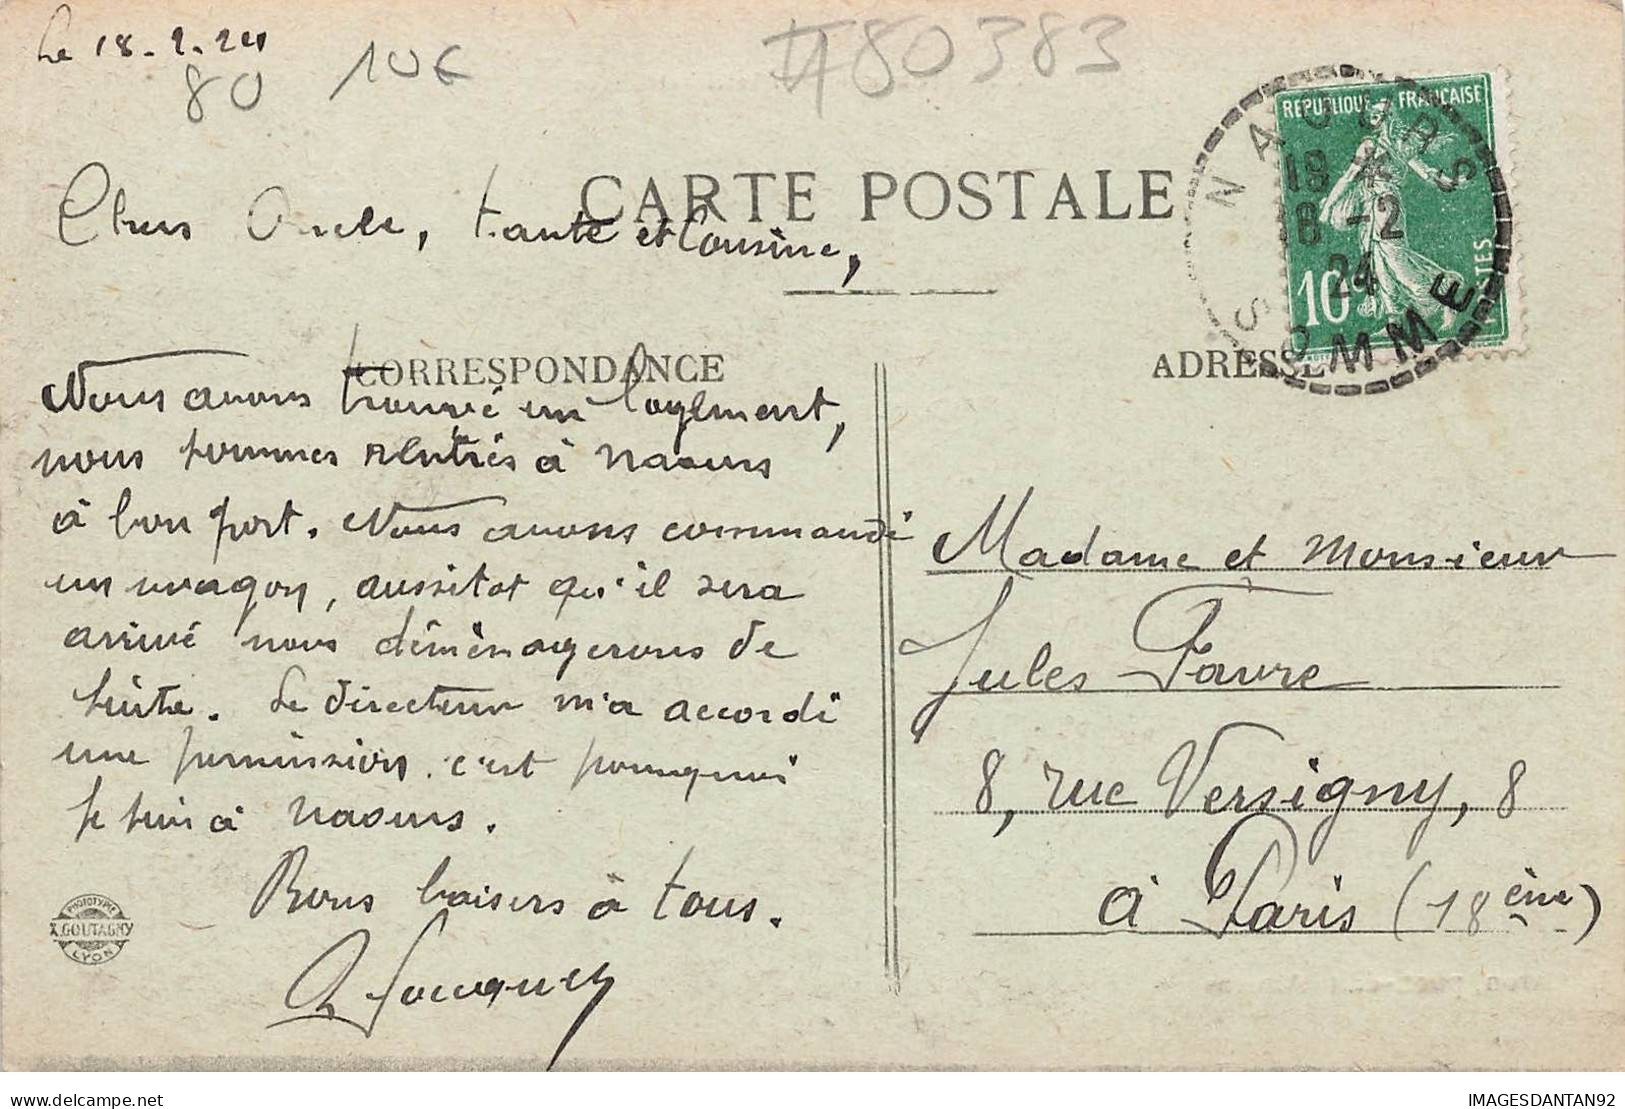 Le 18-2-24
80 10€ #80383
CARTE POSTALE
Chers Oncle, tante et Cousine,
CORRESPONDANCE
Nous avons trouvé un logement,
nous sommes rentrés à Naours
à bon port. Nous avons commandé
un wagon, aussitot qu'il sera
arrivé nous déménagerons de
suite. Le directeur m'a accordé
une permission c'est pourquoi
je suis à Naours.
Bons baisers à tous.
PHOTOTYPIE
A. GOUTAGNY
LYON
REPUBLIQUE FRANÇAISE
10
POSTES
NAOURS
18 *
18 -2
24
SOMME
ADRESSE
Madame et Monsieur
Jules Favre
8, rue Versigny, 8
à Paris (18ème)
delcampe.net
IMAGESDANTAN92